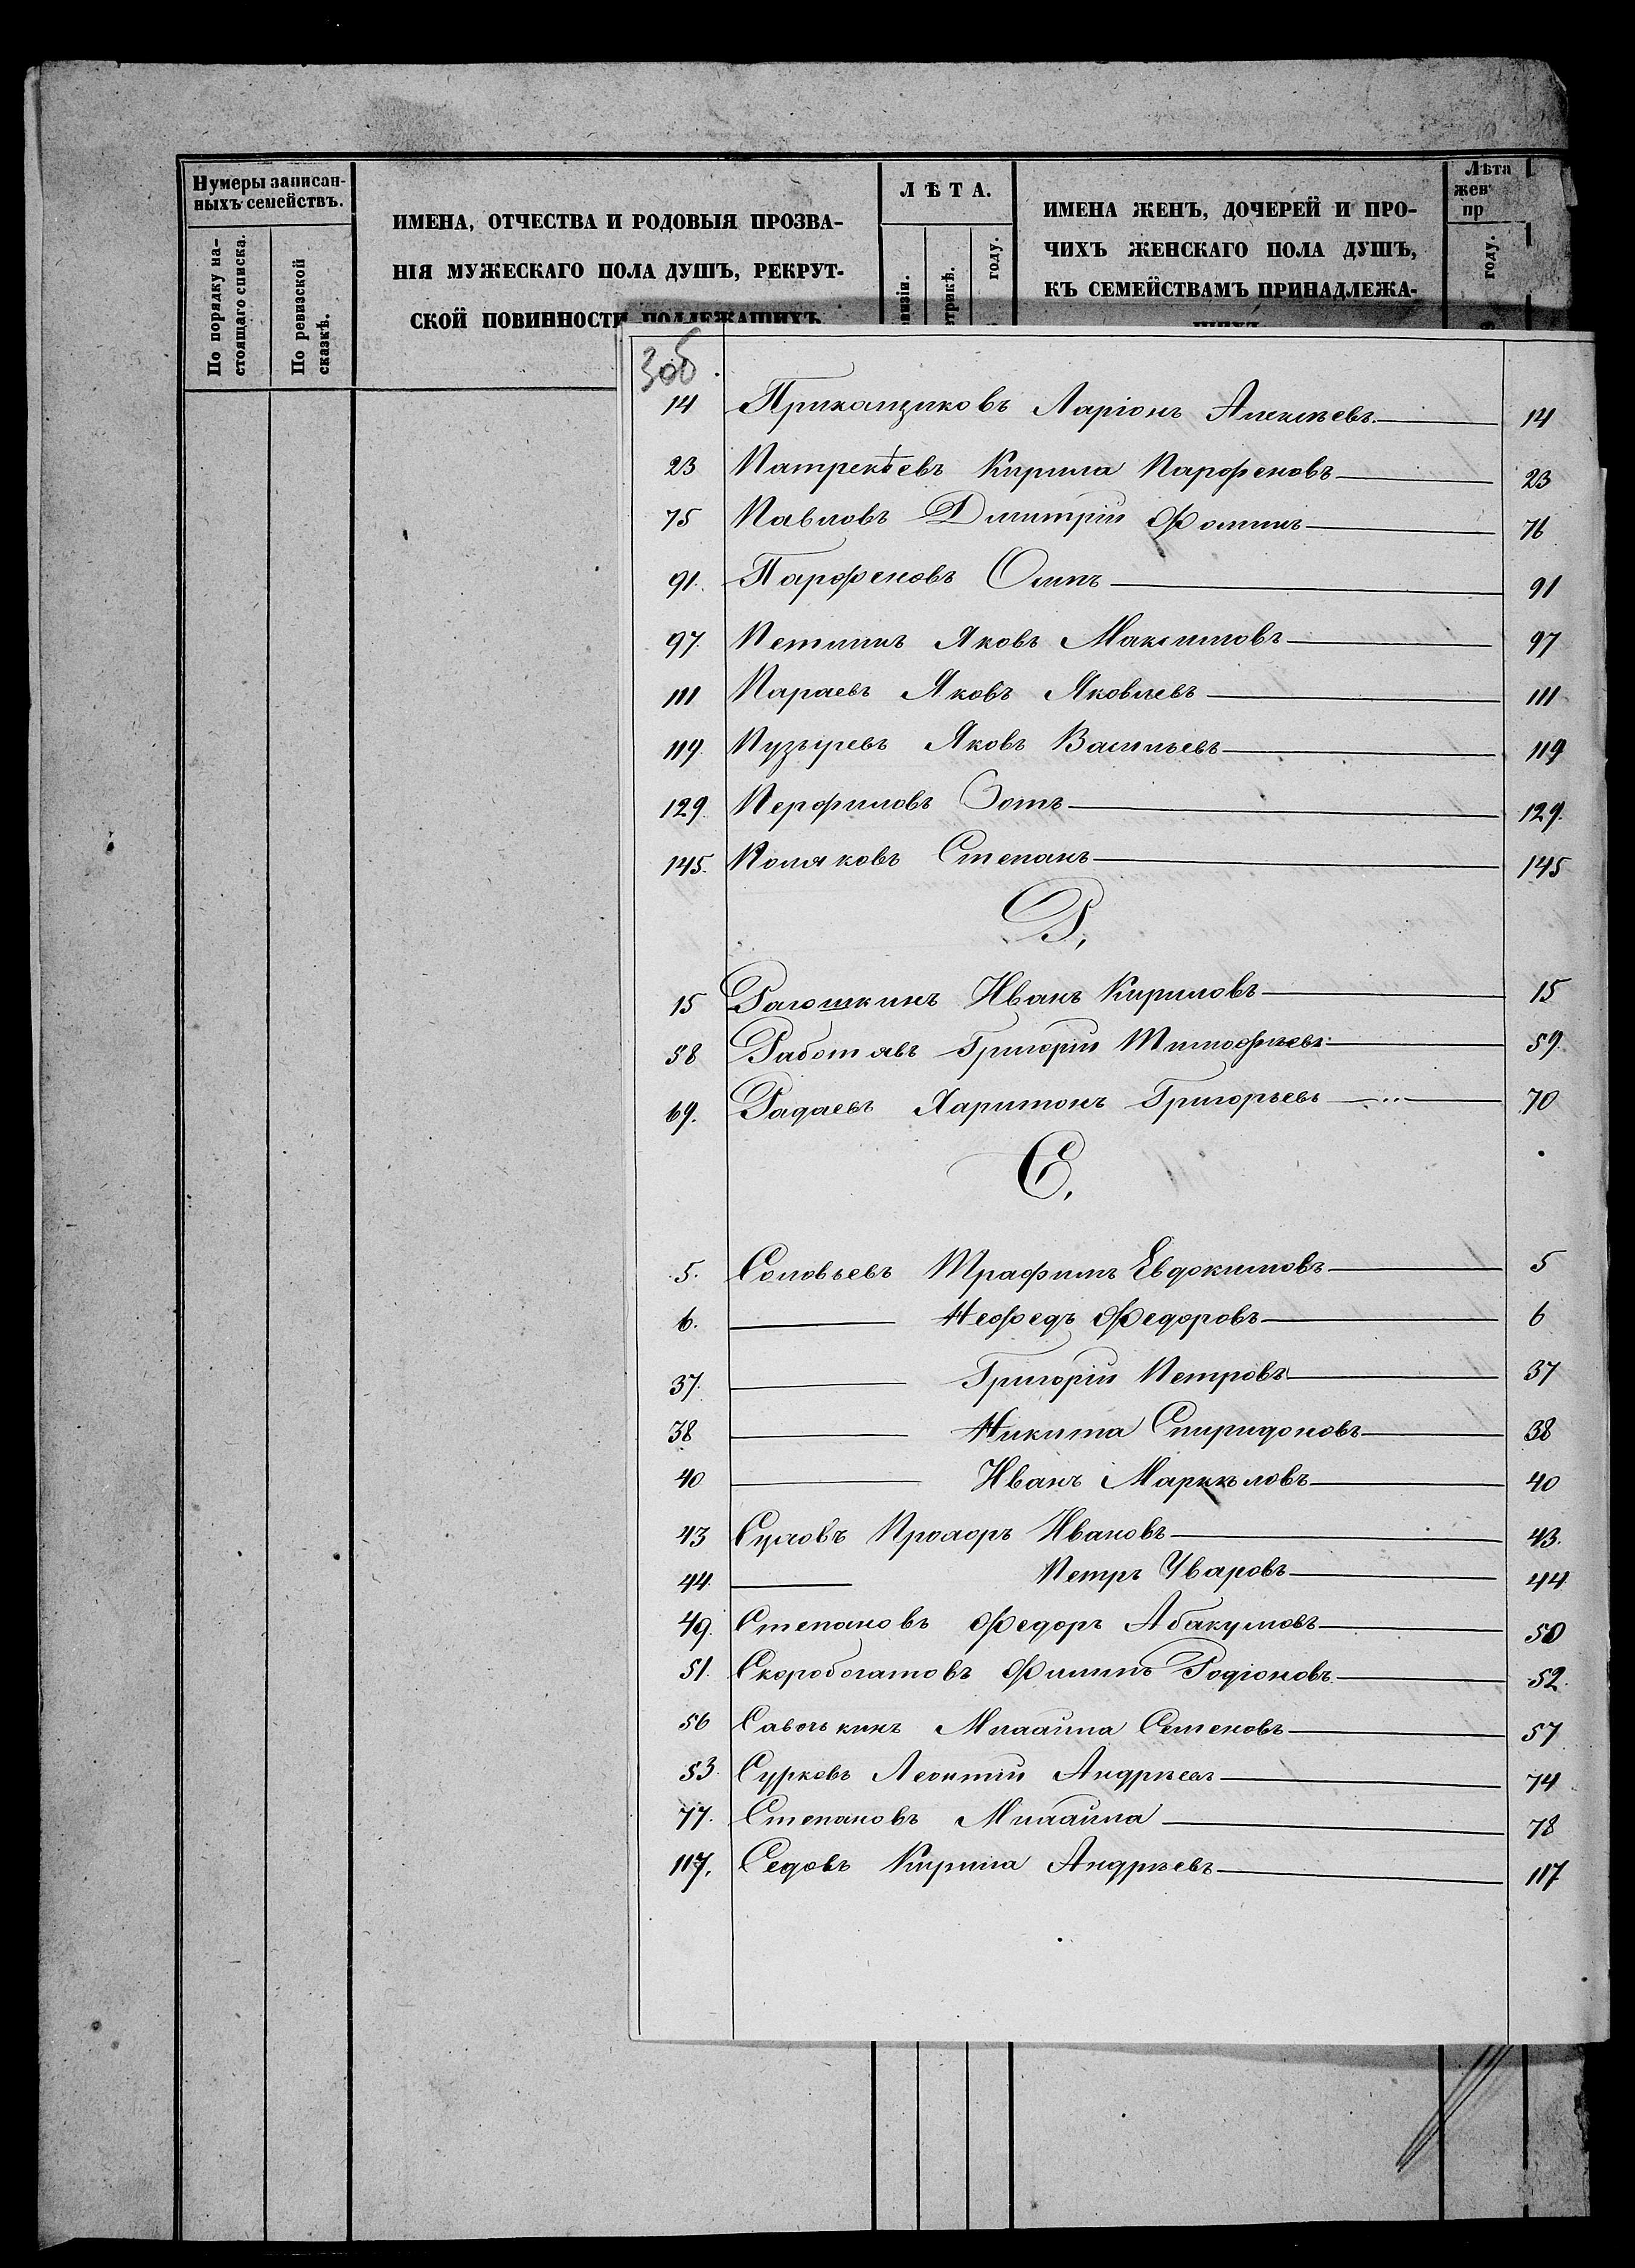 Нумеры записан-
ныхъ семействъ.
По порядку на-
стоящаго списка.
По ревизской
сказкѣ.
ИМЕНА, ОТЧЕСТВА И РОДОВЫЯ ПРОЗВА-
НІЯ МУЖЕСКАГО ПОЛА ДУШЪ, РЕКРУТ-
СКОЙ ПОВИННОСТИ ПОДЛЕЖАЩИХЪ.
ЛѢТА.
году.
ИМЕНА ЖЕНЪ, ДОЧЕРЕЙ И ПРО-
ЧИХЪ ЖЕНСКАГО ПОЛА ДУШЪ,
КЪ СЕМЕЙСТВАМЪ ПРИНАДЛЕЖА-
Лѣта
жен
пр
году.
14 Приказщиковъ Ларіонъ Алексѣевъ 14
23 Патрекѣевъ Кирила Парфеновъ 23
75 Павловъ Дмитрій Фоминъ 76
91. Парфеновъ Осипъ 91
97. Петлинъ Яковъ Максимовъ 97
111 Параевъ Яковъ Яковлевъ 111
119. Пузыревъ Яковъ Васильевъ 119
129. Перфиловъ Зотъ 129.
145. Поляковъ Степанъ 145
Р,
15 Рагошкинъ Иванъ Кириловъ 15
58 Григорій Тимофѣевъ 59.
69. Радаевъ Харитонъ Григорьевъ 70
С,
5. Соловьевъ Трафимъ Евдокимовъ 5
6. Нефедъ Федоровъ 6
37. Григорій Петровъ 37
38 Никита Спиридоновъ 38
40 Иванъ Маркѣловъ 40
43 Суховъ Прохоръ Ивановъ 43.
44. Петръ Уваровъ 44
49. Степановъ Федоръ Абакумовъ 50
51. Скоробогатовъ Филипъ Родіоновъ 52.
56 Савочькинъ Михайла Семеновъ 57
53. Сурковъ Леонтій Андрѣевъ 74
77. Степановъ Михайла 78
117. Седовъ Кирила Андрѣевъ 117